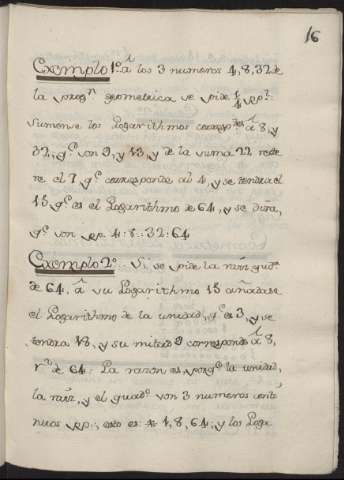 16
Exemplo 1º. â los 3 numeros 4, 8, 32 de
la progⁿ. geometrica se pide
sumense los Logarithmos â 8, y
32, y son 9, y 13, y de la suma 22 reste
se el 7 qᵉ corresponde al 4, y se tendra el
15 qᵉ es el Logarithmo de 64, y se dira,
qᵉ son 4 : 8 : : 32 : 64
Exemplo 2º. Si se pide la
de 64, â su Logarithmo 15 añadase
el Logarithmo de la unidad, qᵉ es 3, y se
tendra 18, y su mitad 9 corresponde â 8,
de 64. La razon es, porqᵉ la unidad,
la y el quadº son 3 numeros conti
nuos esto es 1, 8, 64; y los Loga